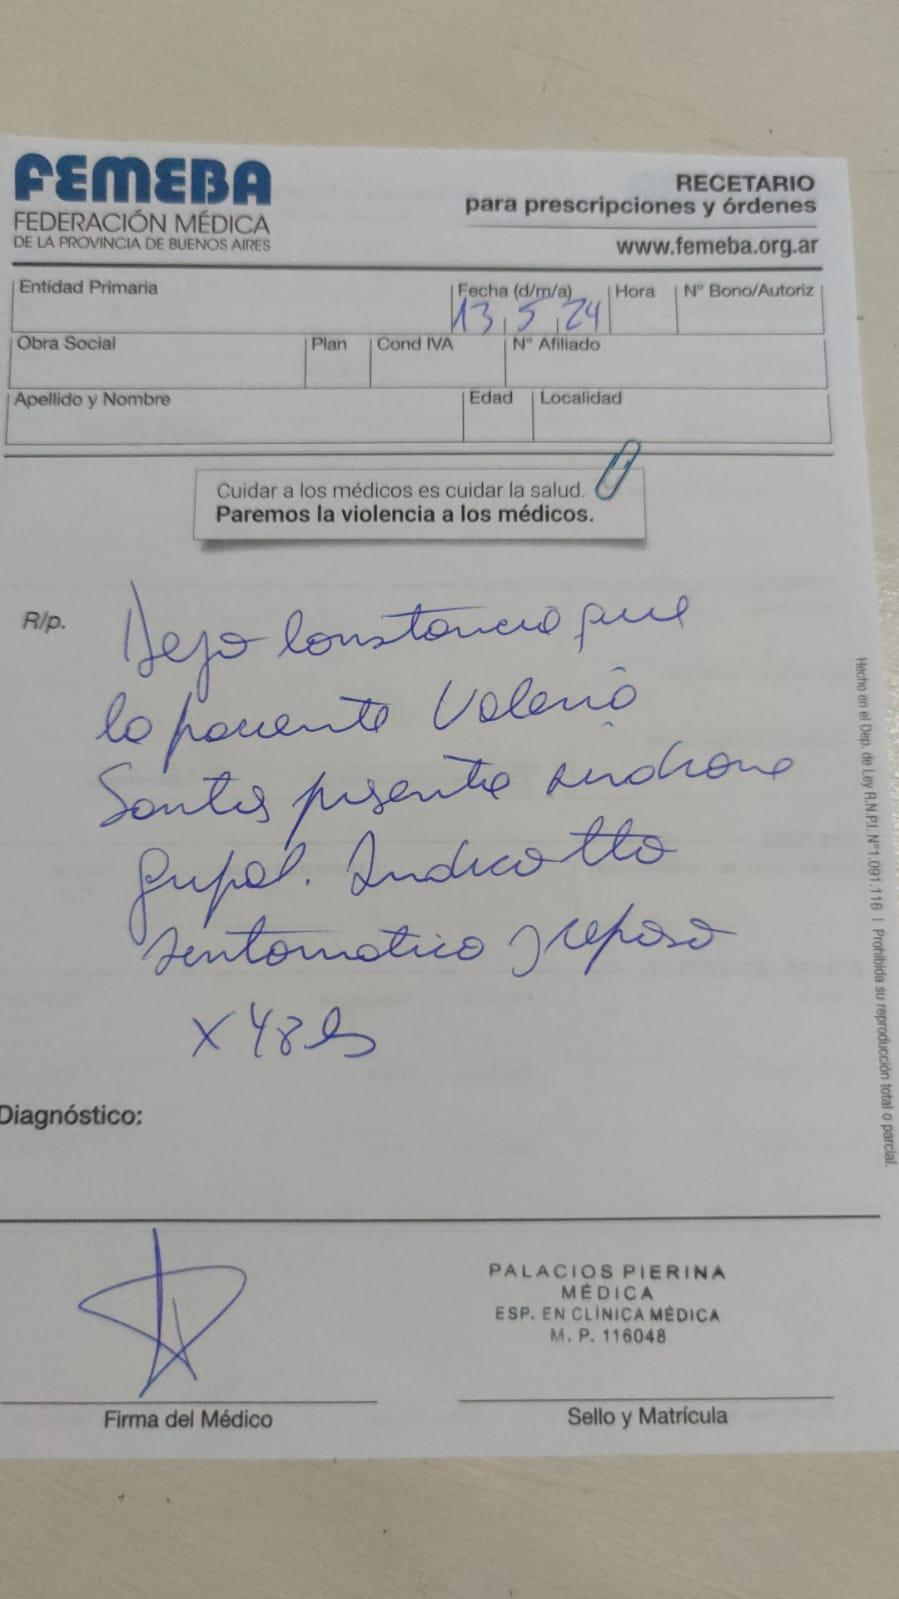 FEMEBA
FEDERACIÓN MÉDICA
DE LA PROVINCIA DE BUENOS AIRES
RECETARIO
para prescripciones y órdenes
www.femeba.org.ar
Entidad Primaria
Fecha (d/m/a)
13 5 24
Hora
Nº Bono/Autoriz
Obra Social
Plan
Cond IVA
Nº Afiliado
Apellido y Nombre
Edad
Localidad
Cuidar a los médicos es cuidar la salud.
Paremos la violencia a los médicos.
R/p.
Dejo constancia que
la paciente Valeria
presenta sindrome
gripal. Indico tto
sintomatico y reposo
x 48hs
Diagnóstico:
Hecho en el Dep. de Ley R.N.P.I. Nº1.091.116 | Prohibida su reproducción total o parcial.
Firma del Médico
PALACIOS PIERINA
MÉDICA
ESP. EN CLÍNICA MÉDICA
M. P. 116048
Sello y Matrícula